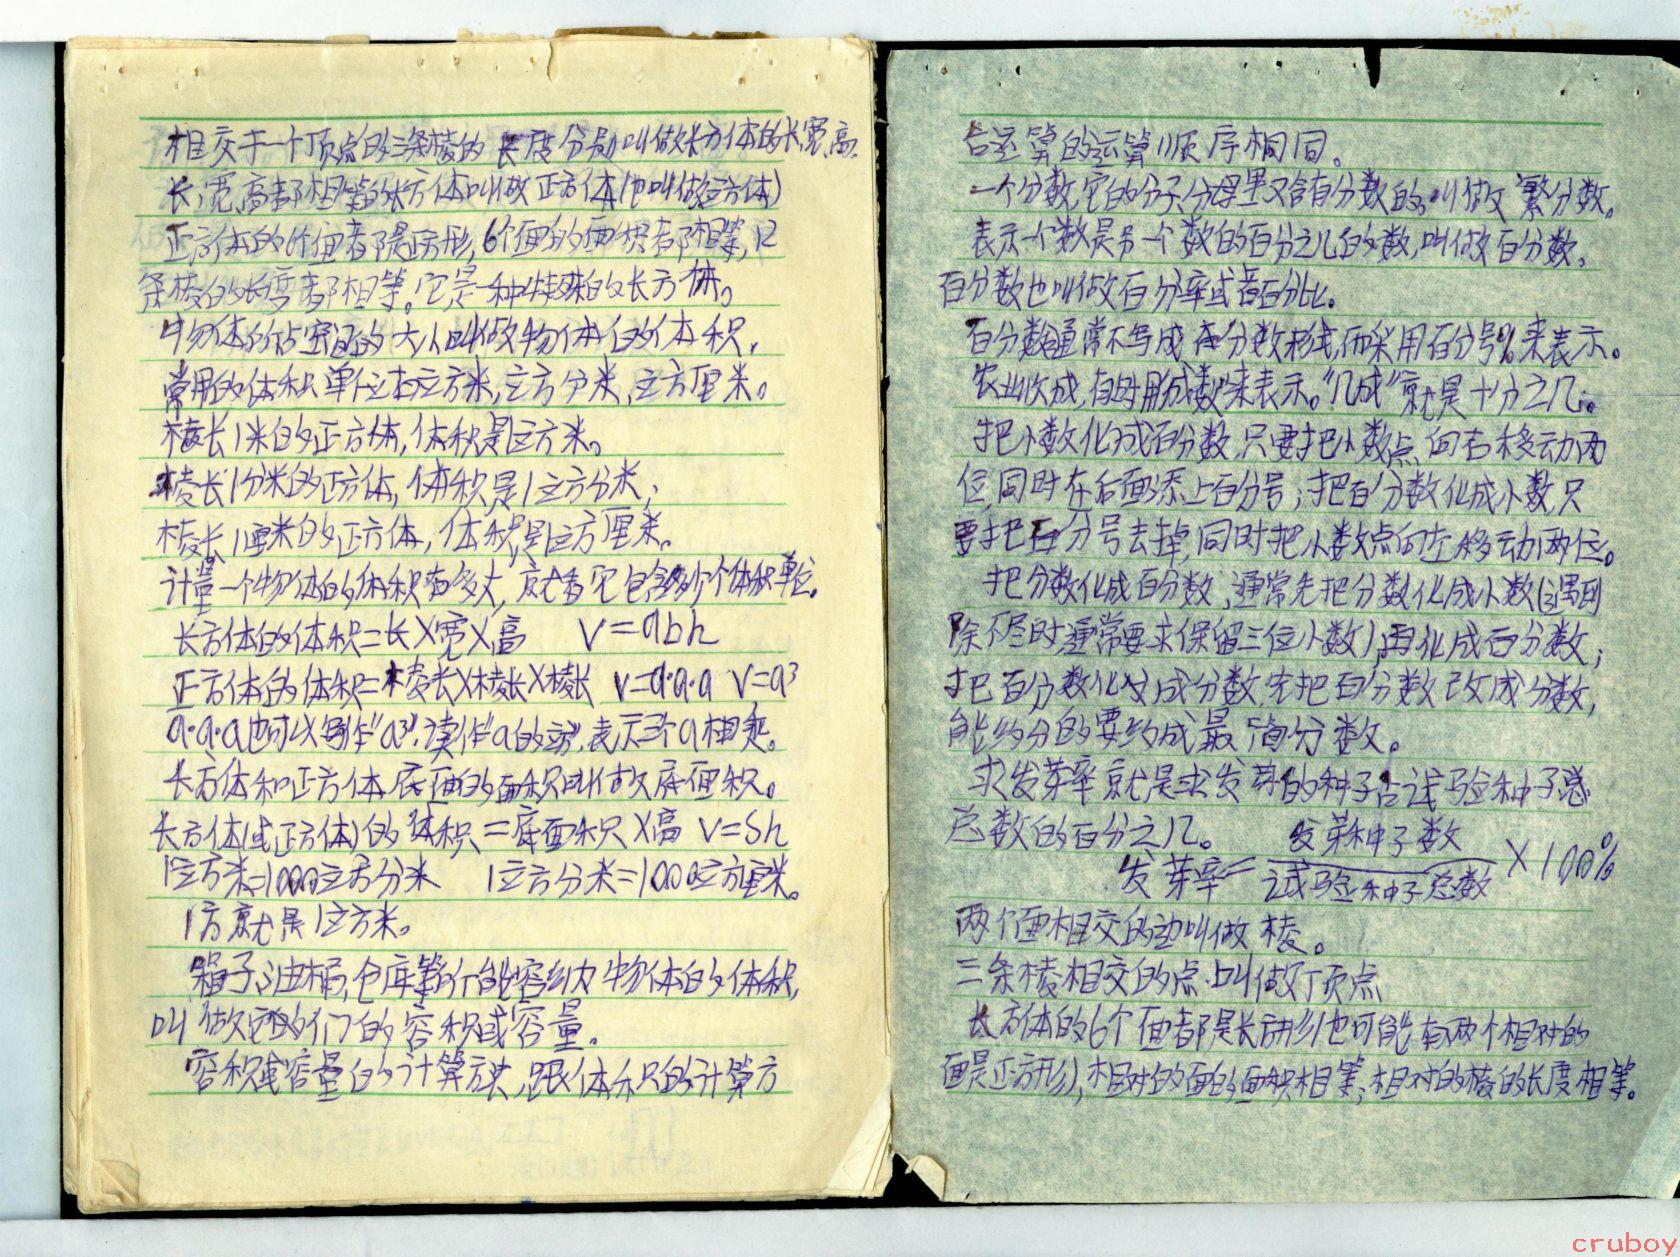 相交于一个顶点的三条棱的长度分别叫做长方体的长、宽、高.
长、宽、高都相等的长方体叫做正方体(也叫做立方体)
正方体的6个面都是正方形,6个面的面积都相等,12
条棱的长度都相等。它是一种特殊的长方体。
物体所占空间的大小叫做物体的体积.
常用的体积单位有立方米,立方分米,立方厘米。
棱长1米的正方体,体积是1立方米。
棱长1分米的正方体,体积是1立方分米,
棱长1厘米的正方体,体积是1立方厘米。
计量一个物体的体积有多大,就看它包含多少个体积单位。
长方体的体积=长×宽×高 V=abh
正方体的体积=棱长×棱长×棱长 V=a·a·a V=a³
a·a·a也可以写作"a³",读作"a的立方",表示三个a相乘。
长方体和正方体底面的面积叫做底面积。
长方体(或正方体)的体积=底面积×高 V=Sh
1立方米=1000立方分米 1立方分米=1000立方厘米。
1方就是1立方米。
箱子、油桶,仓库等所能容纳物体的体积,
叫做它们的容积或容量。
容积或容量的计算方法,跟体积的计算方
合运算的运算顺序相同。
一个分数,它的分子、分母里又含有分数的,叫做繁分数。
表示一个数是另一个数的百分之几的数,叫做百分数。
百分数也叫做百分率或者百分比。
百分数通常不写成分数形式,而采用百分号%来表示。
农业收成,有时用成数来表示。"几成"就是十分之几。
把小数化成百分数,只要把小数点向右移动两
位,同时在后面添上百分号;把百分数化成小数,只
要把百分号去掉,同时把小数点向左移动两位。
把分数化成百分数,通常先把分数化成小数(遇到
除不尽时通常要求保留三位小数),再化成百分数;
把百分数化成分数,先把百分数改成分数,
能约分的要约成最简分数。
求发芽率就是求发芽的种子占试验种子总
总数的百分之几。
发芽率=发芽种子数/试验种子总数×100%
两个面相交的边叫做棱。
三条棱相交的点.叫做顶点
长方体的6个面都是长方形(也可能有两个相对的
面是正方形),相对的面的面积相等,相对的棱的长度相等。
cruboy